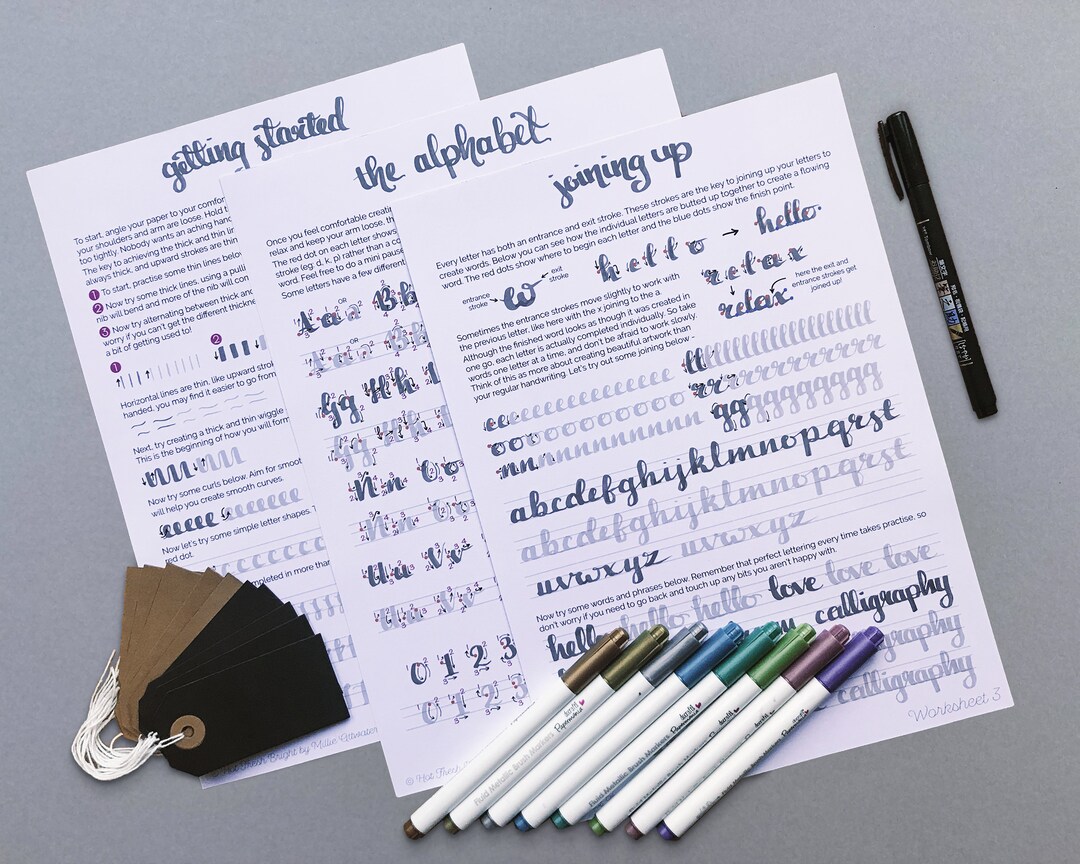 getting started
To start, angle your paper to your comfor
your shoulders and arm are loose. Hold
too tightly. Nobody wants an aching han
The key to achieving the thick and thin lin
always thick, and upward strokes are thin
1 To start, practise some thin lines below.
2 Now try some thick lines, using a pulli
nib will bend and more of the nib will con
3 Now try alternating between thick and
worry if you can't get the different thickne
a bit of getting used to!
1
2
Horizontal lines are thin, like upward strok
handed, you may find it easier to go from
Next, try creating a thick and thin wiggle
This is the beginning of how you will form
Now try some curls below. Aim for smoot
will help you create smooth curves.
eeeee eeeeee
Now let's try some simple letter shapes. T
red dot.
ccccc
mpleted in more than
Hot Thesh Bright by Millie Atwater
the alphabet
Once you feel comfortable creati
relax and keep your arm loose, th
The red dot on each letter shows
stroke (eg. d, k, p) rather than a co
word. Feel free to do a mini pause
Some letters have a few different
OR
Aa a Bb
OR
Gg Hh
Nn Oo
Uu Vv
0 1 2 3
0 1 2 3
© Hot Thesh
joining up
Every letter has both an entrance and exit stroke. These strokes are the key to joining up your letters to
create words. Below you can see how the individual letters are butted up together to create a flowing
word. The red dots show where to begin each letter and the blue dots show the finish point.
entrance
stroke
w
exit
stroke
h e l l o → hello
r e l a x
relax
here the exit and
entrance strokes get
joined up!
Sometimes the entrance strokes move slightly to work with
the previous letter, like here with the x joining to the a.
Although the finished word looks as though it was created in
one go, each letter is actually completed individually. So take
words one letter at a time, and don't be afraid to work slowly.
Think of this as more about creating beautiful artwork than
your regular handwriting. Let's try out some joining below -
eeeeeeeeeeeeee
llllllllllllllllll
ooooooooooooo
rrrrrrrrrrrrr
nnnnnnnnnnn
ggggggggggg
abcdefghijklmnopqrst
abcdefghijklmnopqrst
uvwxyz uvwxyz
Now try some words and phrases below. Remember that perfect lettering every time takes practise, so
don't worry if you need to go back and touch up any bits you aren't happy with.
hello hello hello love love love
calligraphy
graphy
calligraphy
Worksheet 3
Papermania
Fluid Metallic Brush Markers
Papermania
Fluid Metallic Brush Markers